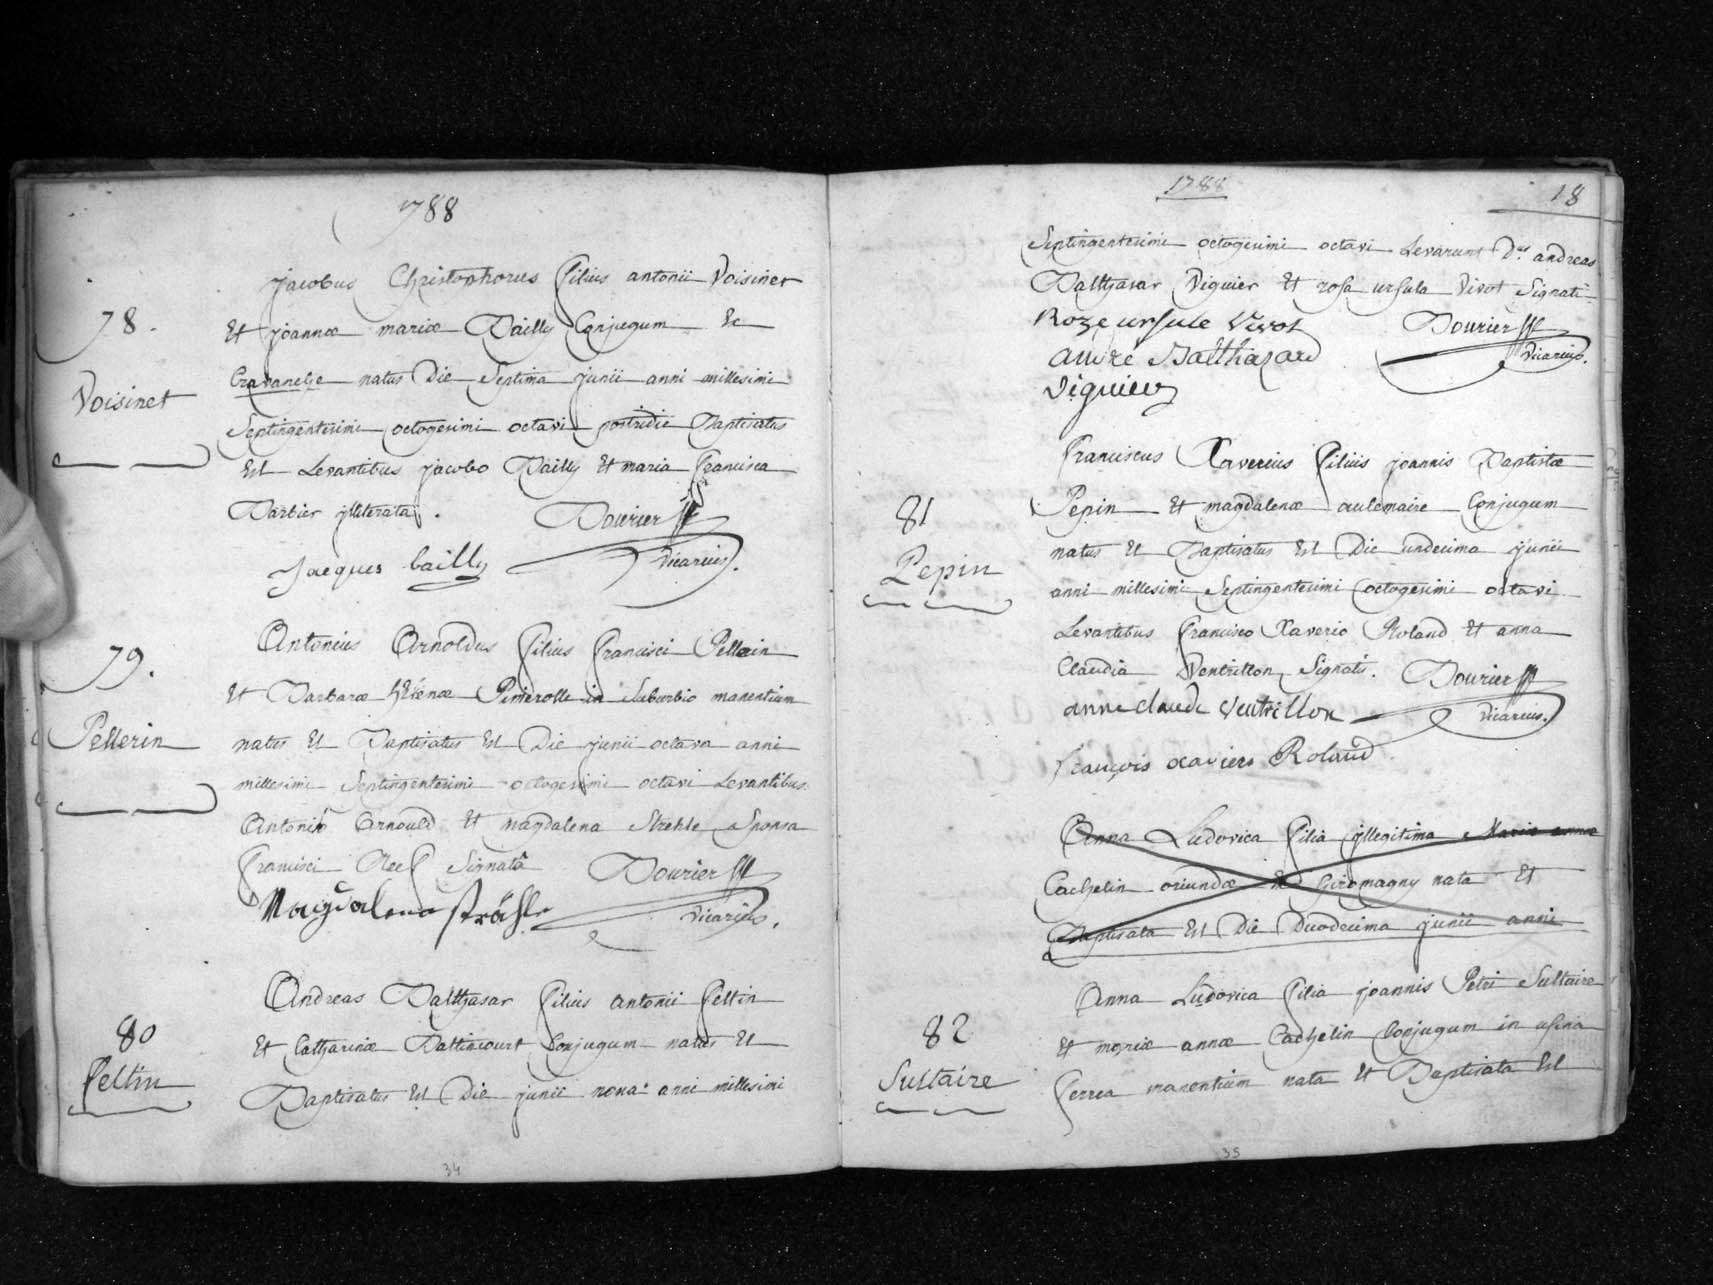 1788
78.
Voisinet
Jacobus Christophorus filius antonii Voisinet
Et joannæ mariæ Bailly Conjugum Ec
Cravanche natus Die Septima junii anni millesimi
Septingentesimi octogesimi octavi postridie Baptisatus
Est Levantibus jacobo Bailly Et maria francisca
Barbier jlliterata.
Dourier ppt
Vicarius.
Jacques bailly
79.
Pellerin
Antonius Arnoldus filius francisci Pellerin
Et Barbaræ helenæ Pimerolle in Suburbio manentium
natus Et Baptisatus Est Die junii octava anni
millesimi Septingentesimi octogesimi octavi Levantibus
Antonio Arnould Et magdalena Strehle Sponsa
francisci Signatâ
Dourier ppt
Vicarius.
Magdalena strähle
80
feltin
Andreas Balthasar filius antonii feltin
Et Catharinæ Battincourt Conjugum natus Et
Baptisatus Est Die junii nona anni millesimi
34
1788
18
Septingentesimi octogesimi octavi Levarunt D.us andreas
Balthasar Viguier Et rosa ursula Vivot Signati
Roze ursule Vivot
andré Balthazard
Viguier
Dourier ppt
Vicarius.
81
Pepin
franciscus Xaverius filius joannis Baptistæ
Pepin Et magdalenæ aulemaire Conjugum
natus Et Baptisatus Est Die undecima junii
anni millesimi Septingentesimi octogesimi octavi
Levantibus francisco Xaverio Roland Et anna
Claudia Ventrillon Signati.
Dourier ppt
Vicarius.
anne claude Ventrillon
françois xaviere Roland
Anna Ludovica filia jllegitima Mariæ annæ
Cachelin oriundæ Ex Giromagny nata Et
Baptisata Est Die Duodecima junii anni
82
Sultaire
Anna Ludovica filia joannis Petri Sultaire
Et mariæ annæ Cachelin Conjugum in usina
ferrea manentium nata Et Baptisata Est
35